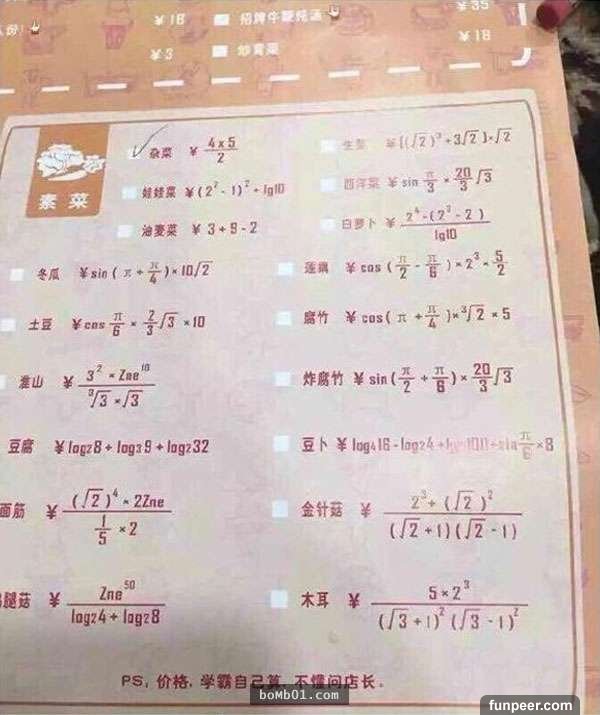 ¥35
¥18 招牌牛腩炖汤
¥18
¥3 炒青菜
素菜
杂菜 ¥ 4×5/2
生菜 ¥[(√2)³+3√2]×√2
娃娃菜 ¥(2²-1)²+lg10
西洋菜 ¥sin π/3 × 20/3 √3
油麦菜 ¥3+9-2
白萝卜 ¥ 2⁴-(2³-2)/lg10
冬瓜 ¥sin(π+π/4)×10√2
莲藕 ¥cos(π/2-π/6)×2³×5/2
土豆 ¥cos π/6 × 2/3 √3 ×10
腐竹 ¥cos(π+π/4)×³√2×5
淮山 ¥ 3²×2ne¹⁰/³√3×√3
炸腐竹 ¥sin(π/2+π/6)×20/3 √3
豆腐 ¥log28+log39+log232
豆卜 ¥log416-log24+ +sin π/6 ×8
面筋 ¥ (√2)⁴×2Zne/1/5×2
金针菇 ¥ 2³+(√2)²/(√2+1)(√2-1)
腿菇 ¥ Zne⁵⁰/log24+log28
木耳 ¥ 5×2³/(√3+1)²(√3-1)²
PS,价格,学霸自己算,不懂问店长。
boMb01.com
funpeer.com